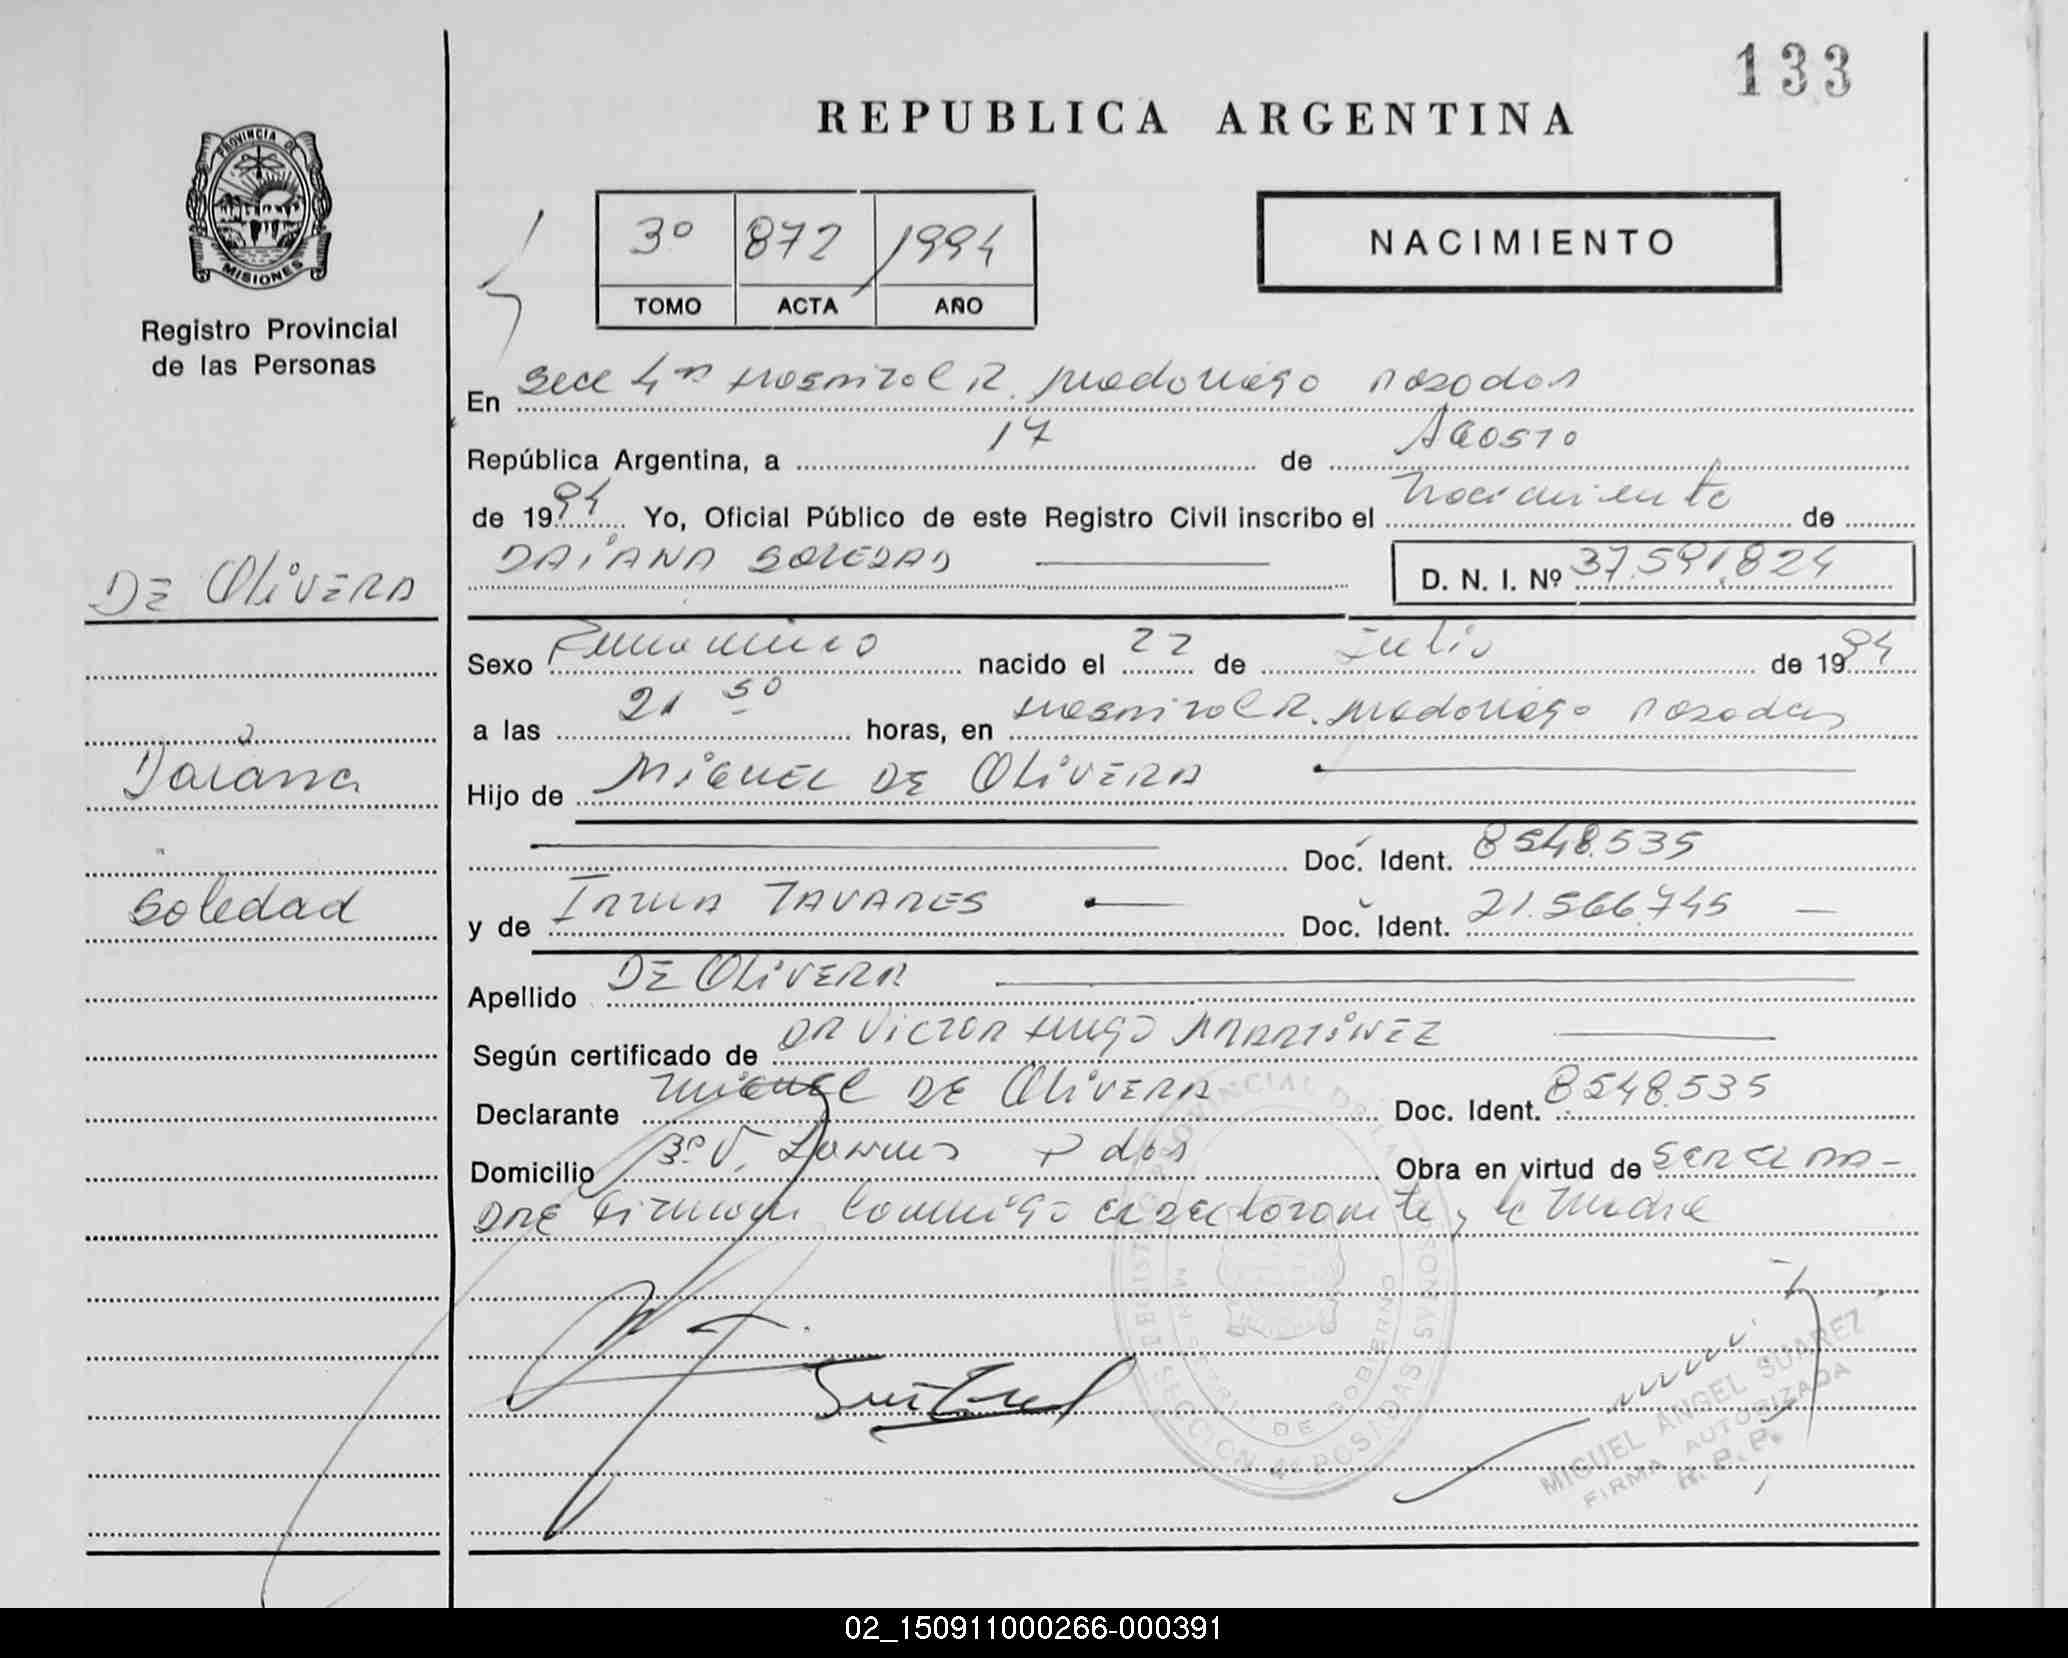 133
REPUBLICA ARGENTINA
PROVINCIA DE
MISIONES
Registro Provincial
de las Personas
3º 872 1994
TOMO ACTA AÑO
NACIMIENTO
En Secc 4ta Hospital R. Madariaga Posadas
República Argentina, a 17 de Agosto
de 1994 Yo, Oficial Público de este Registro Civil inscribo el Nacimiento de
DAIANA SOLEDAD
D. N. I. Nº 37.591.824
DE OLIVERA
Daiana
Soledad
Sexo Femenino nacido el 22 de Julio de 1994
a las 21 50 horas, en Hospital R. Madariaga Posadas
Hijo de MIGUEL DE OLIVERA
Doc. Ident. 8548.535
y de IRMA TAVARES Doc. Ident. 21.566.745
Apellido DE OLIVERA
Según certificado de DR VICTOR HUGO MARTINEZ
Declarante MIGUEL DE OLIVERA Doc. Ident. 8548.535
Domicilio Bº V. Pdas Obra en virtud de SER EL PA-
DRE Firman conmigo el declarante y la Madre
REGISTRO PROVINCIAL DE LAS PERSONAS
MINISTERIO DE GOBIERNO
SECCION 4º POSADAS
MIGUEL ANGEL SUAREZ
FIRMA AUTORIZADA
R. P. P.
02_150911000266-000391